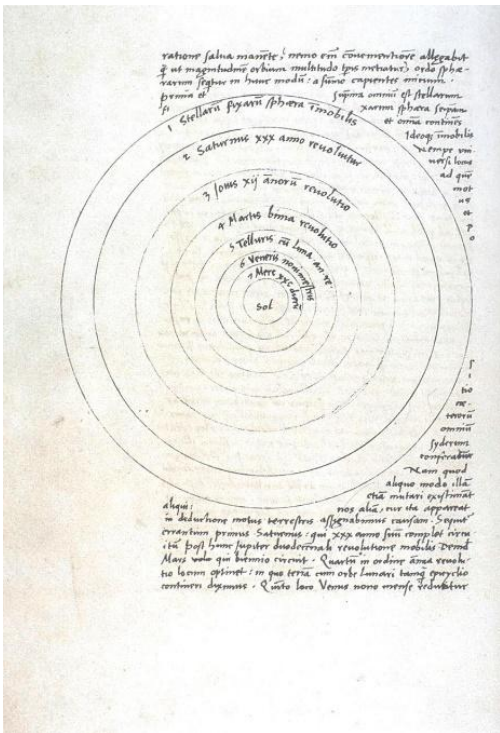 ratione salva manēte, nemo em̄ cōvenientiorē allegabit
q̄ ut magnitudinē orbium multitudo tp̄is metiatur) ordo sphæ-
rarum seq̄tur in hunc modū: a sūmo capientes initium.
prima et suprema omniū est stellarum
fixarum sphæra seipsam
et omnia continēs
Ideoq; īmobilis
Nempe uni-
versi locus
ad quē
mot
us
et
p
o
1 Stellarū fixarū sphæra īmobilis
2 Saturnus xxx anno revolvitur
3 Jovis xij annorū revolutio
4 Martis bima revolutio
5 Telluris cū luna an. re.
6 Veneris nonimestris
7 Merc xxc dierū
Sol
s
i
tio
cæ-
terorū
omniū
syderum
conferatur
Nam quod
aliquo modo illā
etiā mutari existimāt
aliqui: nos aliā, cur ita appareat
in deductione motus terrestris assignabimus causam. Sequitur
errantium primus Saturnus: qui xxx anno suū complet circu
itū post hunc Jupiter duodecennali revolutione mobilis Deinde
Mars qui biennio circuit. Quartū in ordine annua revolu
tio locum optinet: in quo terrā cum orbe lunari tamq̄ epicyclio
contineri diximus. Quinto loco Venus nono mense reducitur